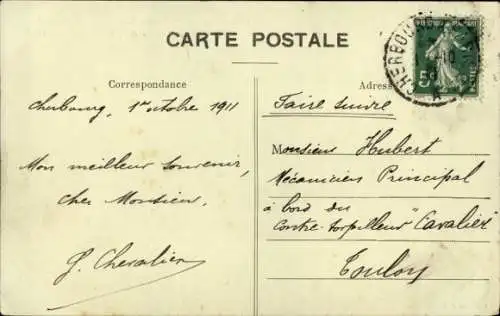 CARTE POSTALE
Correspondance
Cherbourg, 1er octobre 1911
Mon meilleur souvenir,
cher Monsieur,
J. Chevalier
Adresse
Faire suivre
Monsieur Hubert
Mécanicien Principal
à bord du
contre-torpilleur "Cavalier"
Toulon
CHERBOU
5